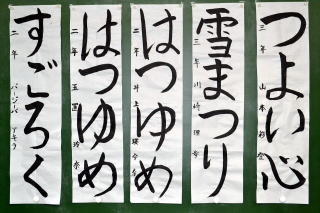 つよい心
三年
雪まつり
三年 川崎
はつゆめ
二年 井上
はつゆめ
二年 玉置 玲奈
すごろく
二年